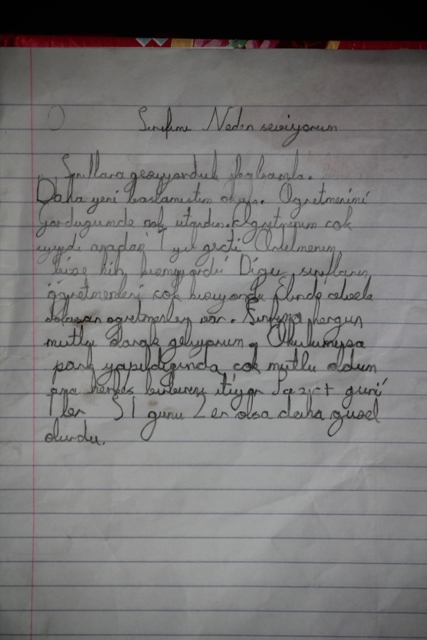 Sınıfımı Neden seviyorum
Sınıflara geziyorduk
Daha yeni başlamıştım okula. Öğretmenimi
gördüğümde çok utandım. Öğretmenim çok
iyiydi aradan 1 yıl geçti Öğretmenim
bize hiç kızmıyordu Diğer sınıfların
öğretmenleri çok kızıyordu Elinde
dolaşan öğretmenler var. Sınıfıma hergün
mutlu olarak geliyorum. Okulumuza
park yapıldığında çok mutlu oldum
ama herkes birbirini itiyor Pazart günü
1 ler S1 günü 2 ler olsa daha güzel
olurdu.